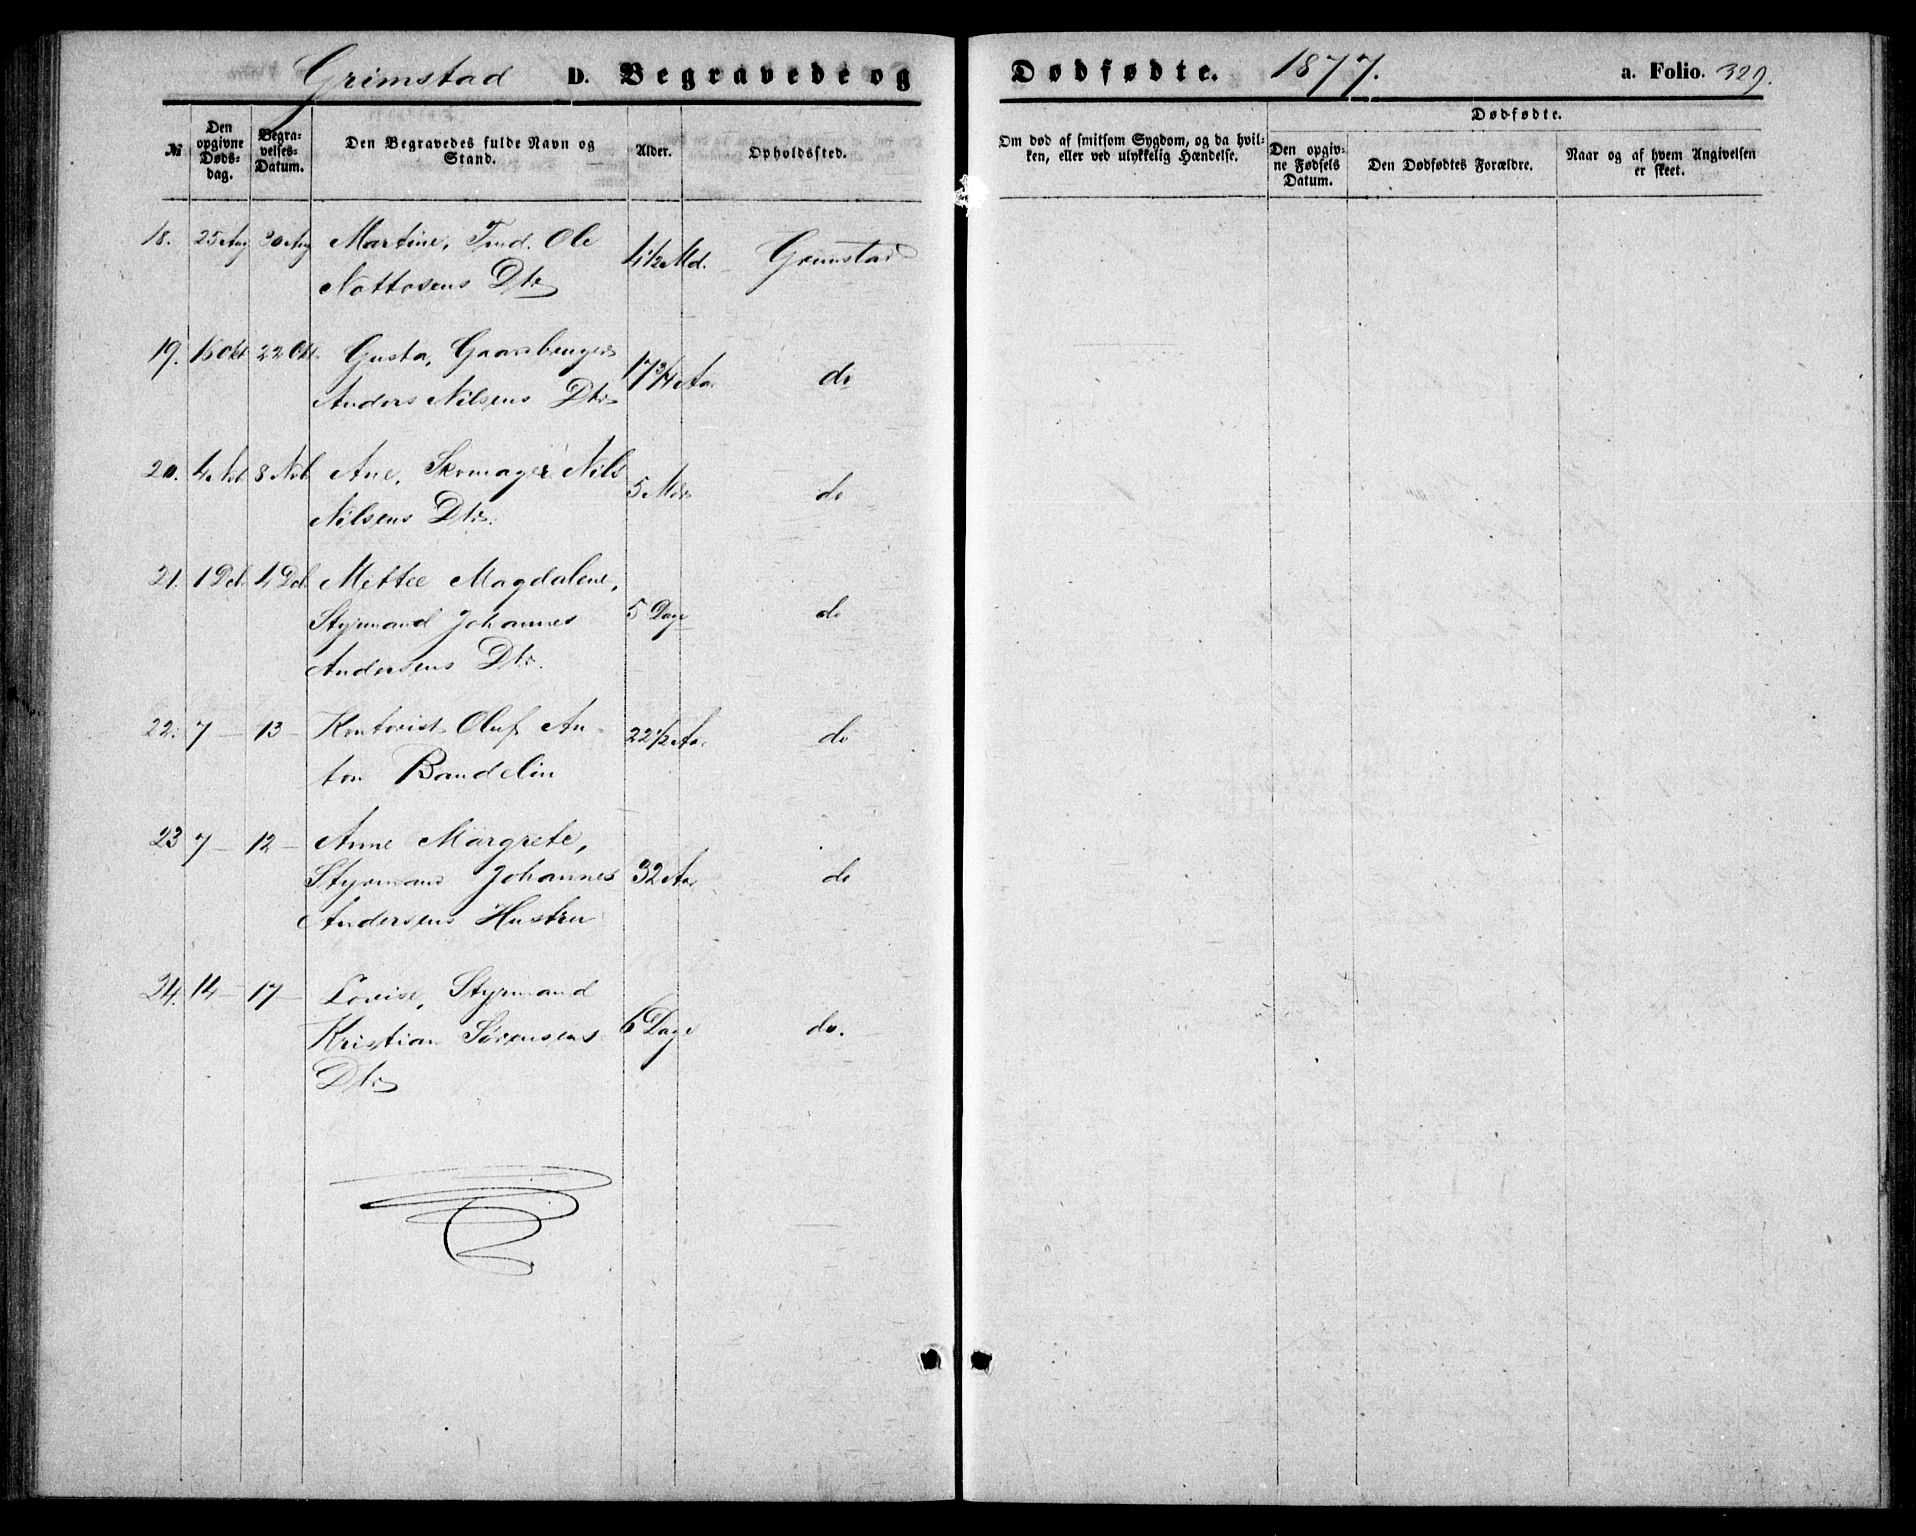 Grimstad D. Begravede og Dødfødte. 1877. a. Folio. 329.
№ Den opgivne Døds-dag. Begra-velses-Datum. Den Begravedes fulde Navn og Stand. Alder. Opholdssted. Om død af smitsom Sygdom, og da hvil-ken, eller ved ulykkelig Hændelse. Dødfødte.
Den opgiv-ne Fødsels Datum. Den Dødfødtes Forældre. Naar og af hvem Angivelsen er skeet.
18. 25 Aug 30 Aug Martine, Ole 4 1/2 Md. Grimstad
Nottosens Dtr
19. 15 Okt 22 Okt. Gusta, Anders Nilsens Dtr 17 3/4 Aar do
20. 4 Nvb 8 Nvb Ane, Skomager Nils 5 Mdr do
Nilsens Dtr.
21. 1 Dcb 4 Dcb Mettee Magdalene,
Styrmand Johannes 5 Dage do
Andersens Dtr.
22. 7 — 13 — Kontorist Oluf An- 22 1/2 Aar do
ton Bandelin
23 7 — 12 — Anne Margrete,
Styrmand Johannes 32 Aar do
Andersens Hustru
24. 14 — 17 — Lovise, Styrmand
Kristian Sørensens 6 Dage do.
Dtr